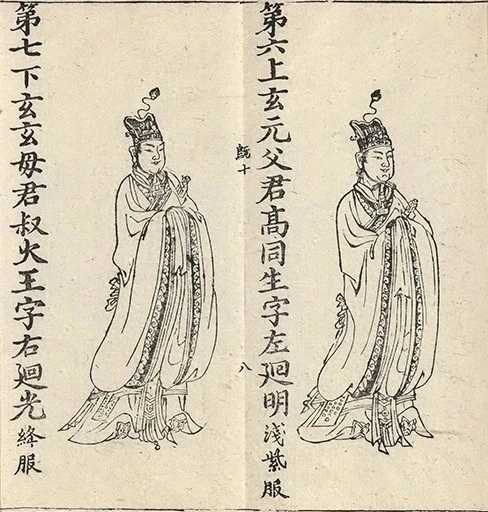 第六上玄元父君髙同生字左廻明淺紫服
既十
八
第七下玄玄母君叔火王字右廻光絳服